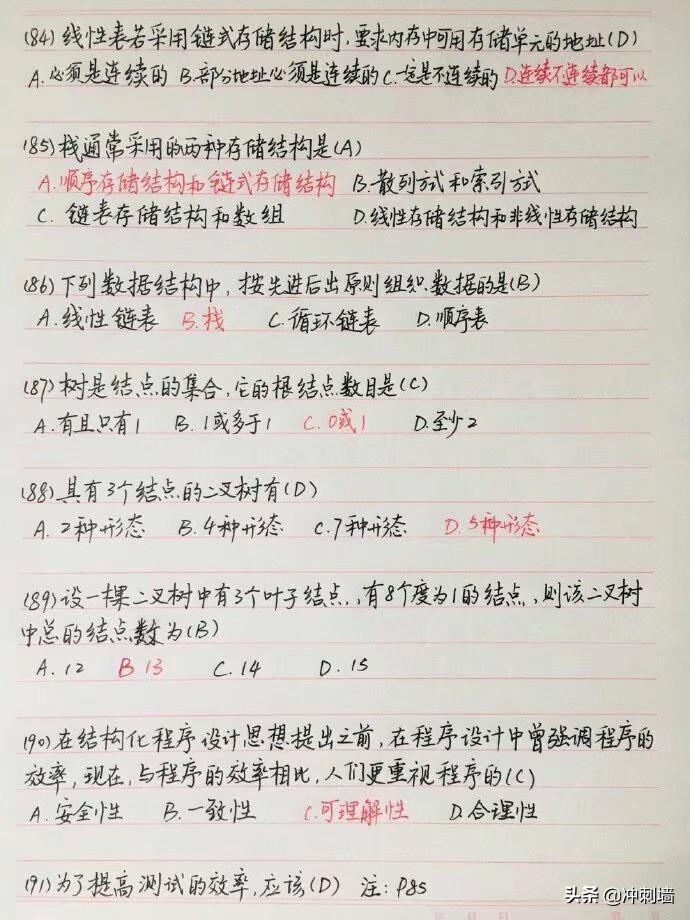 (84)线性表若采用链式存储结构时,要求内存中可用存储单元的地址(D)
A.必须是连续的 B.部分地址必须是连续的 C.一定是不连续的 D.连续不连续都可以
(85)栈通常采用的两种存储结构是(A)
A.顺序存储结构和链式存储结构 B.散列方式和索引方式
C.链表存储结构和数组 D.线性存储结构和非线性存储结构
(86)下列数据结构中,按先进后出原则组织数据的是(B)
A.线性链表 B.栈 C.循环链表 D.顺序表
(87)树是结点的集合,它的根结点数目是(C)
A.有且只有1 B.1或多于1 C.0或1 D.至少2
(88)具有3个结点的二叉树有(D)
A.2种形态 B.4种形态 C.7种形态 D.5种形态
(89)设一棵二叉树中有3个叶子结点,有8个度为1的结点,则该二叉树
中总的结点数为(B)
A.12 B 13 C.14 D.15
(90)在结构化程序设计思想提出之前,在程序设计中曾强调程序的
效率,现在,与程序的效率相比,人们更重视程序的(C)
A.安全性 B.一致性 C.可理解性 D.合理性
(91)为了提高测试的效率,应该(D) 注:P85
头条 @冲刺墙